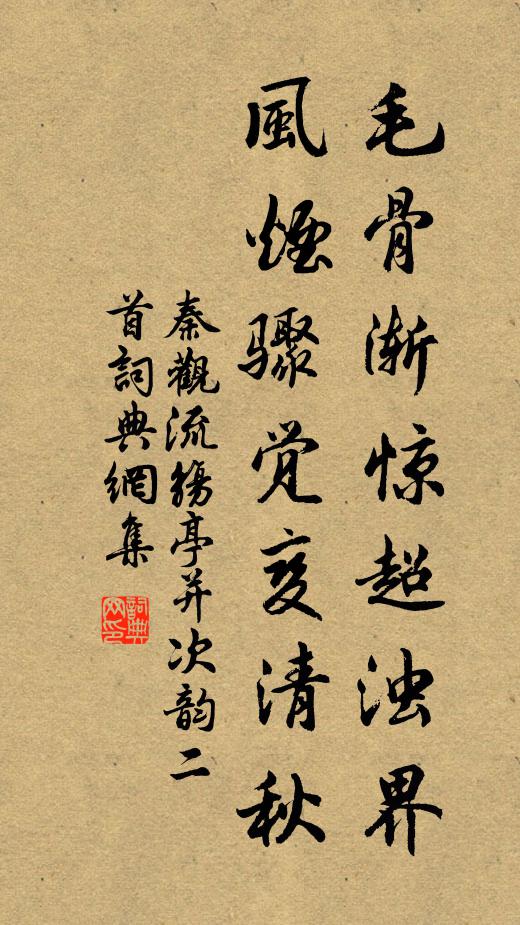 毛骨渐惊超浊界
風煙驟觉变清秋
秦觀流觴亭并次韵二
首詞典網集
詞典网印